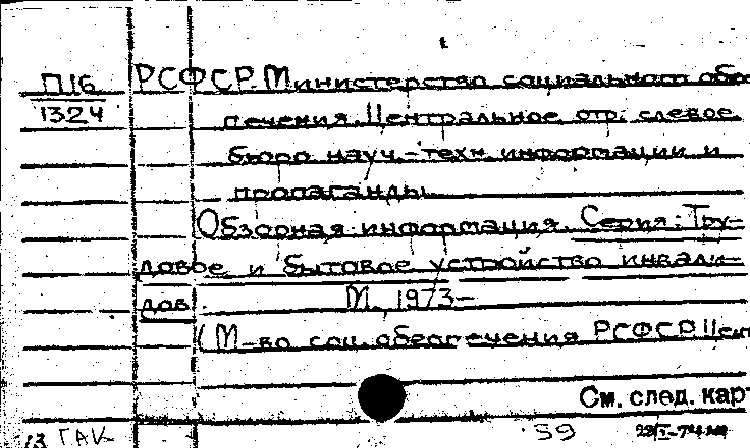 П16
1324
РСФСР. Министерство социального обес
печения. Центральное отраслевое
бюро науч.-техн. информации и
пропаганды
Обзорная информация. Серия: Тру-
довое и бытовое устройство инвали-
дов.
М., 1973-
(М-во соц. обеспечения РСФСР. Цент
См. след. кар
13 ГАК
59